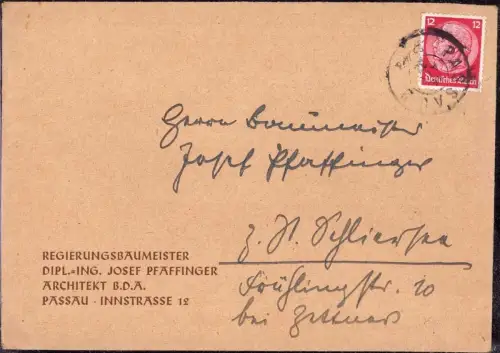 12 12
Deutsches Reich
PASSAU
Herrn Baumeister
Josef Pfaffinger
z. Zt. Schliersee
Frühlingstr. 10
bei
REGIERUNGSBAUMEISTER
DIPL.=ING. JOSEF PFAFFINGER
ARCHITEKT B.D.A.
PASSAU · INNSTRASSE 12